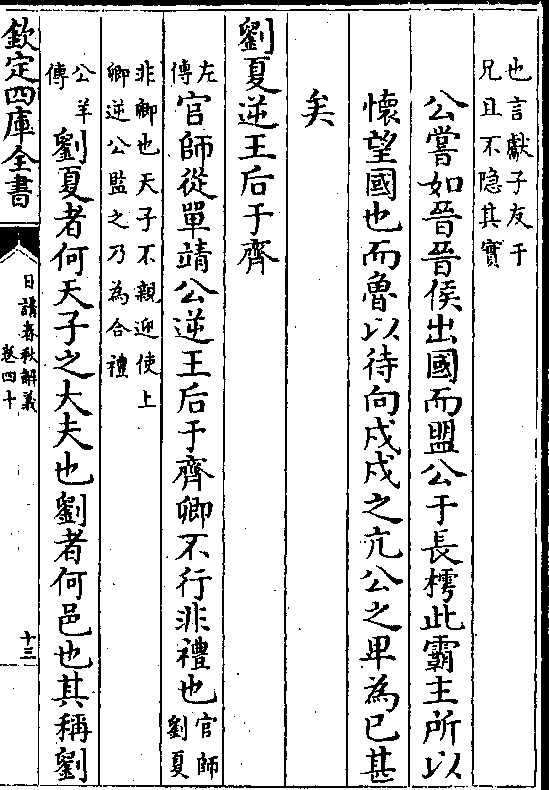 也言獻子友于
兄且不隐其實
公嘗如晉晉侯出國而盟公于長樗此霸主所以
懷望國也而魯以待向戍戍之亢公之卑為已甚
矣
劉夏逆王后于齊
左傳
官師從單靖公逆王后于齊卿不行非禮也
官師
劉夏
非卿也天子不親迎使上
卿逆公監之乃為合禮
公羊傳
劉夏者何天子之大夫也劉者何邑也其稱劉
欽定四庫全書
日講春秋解義
卷四十
十三